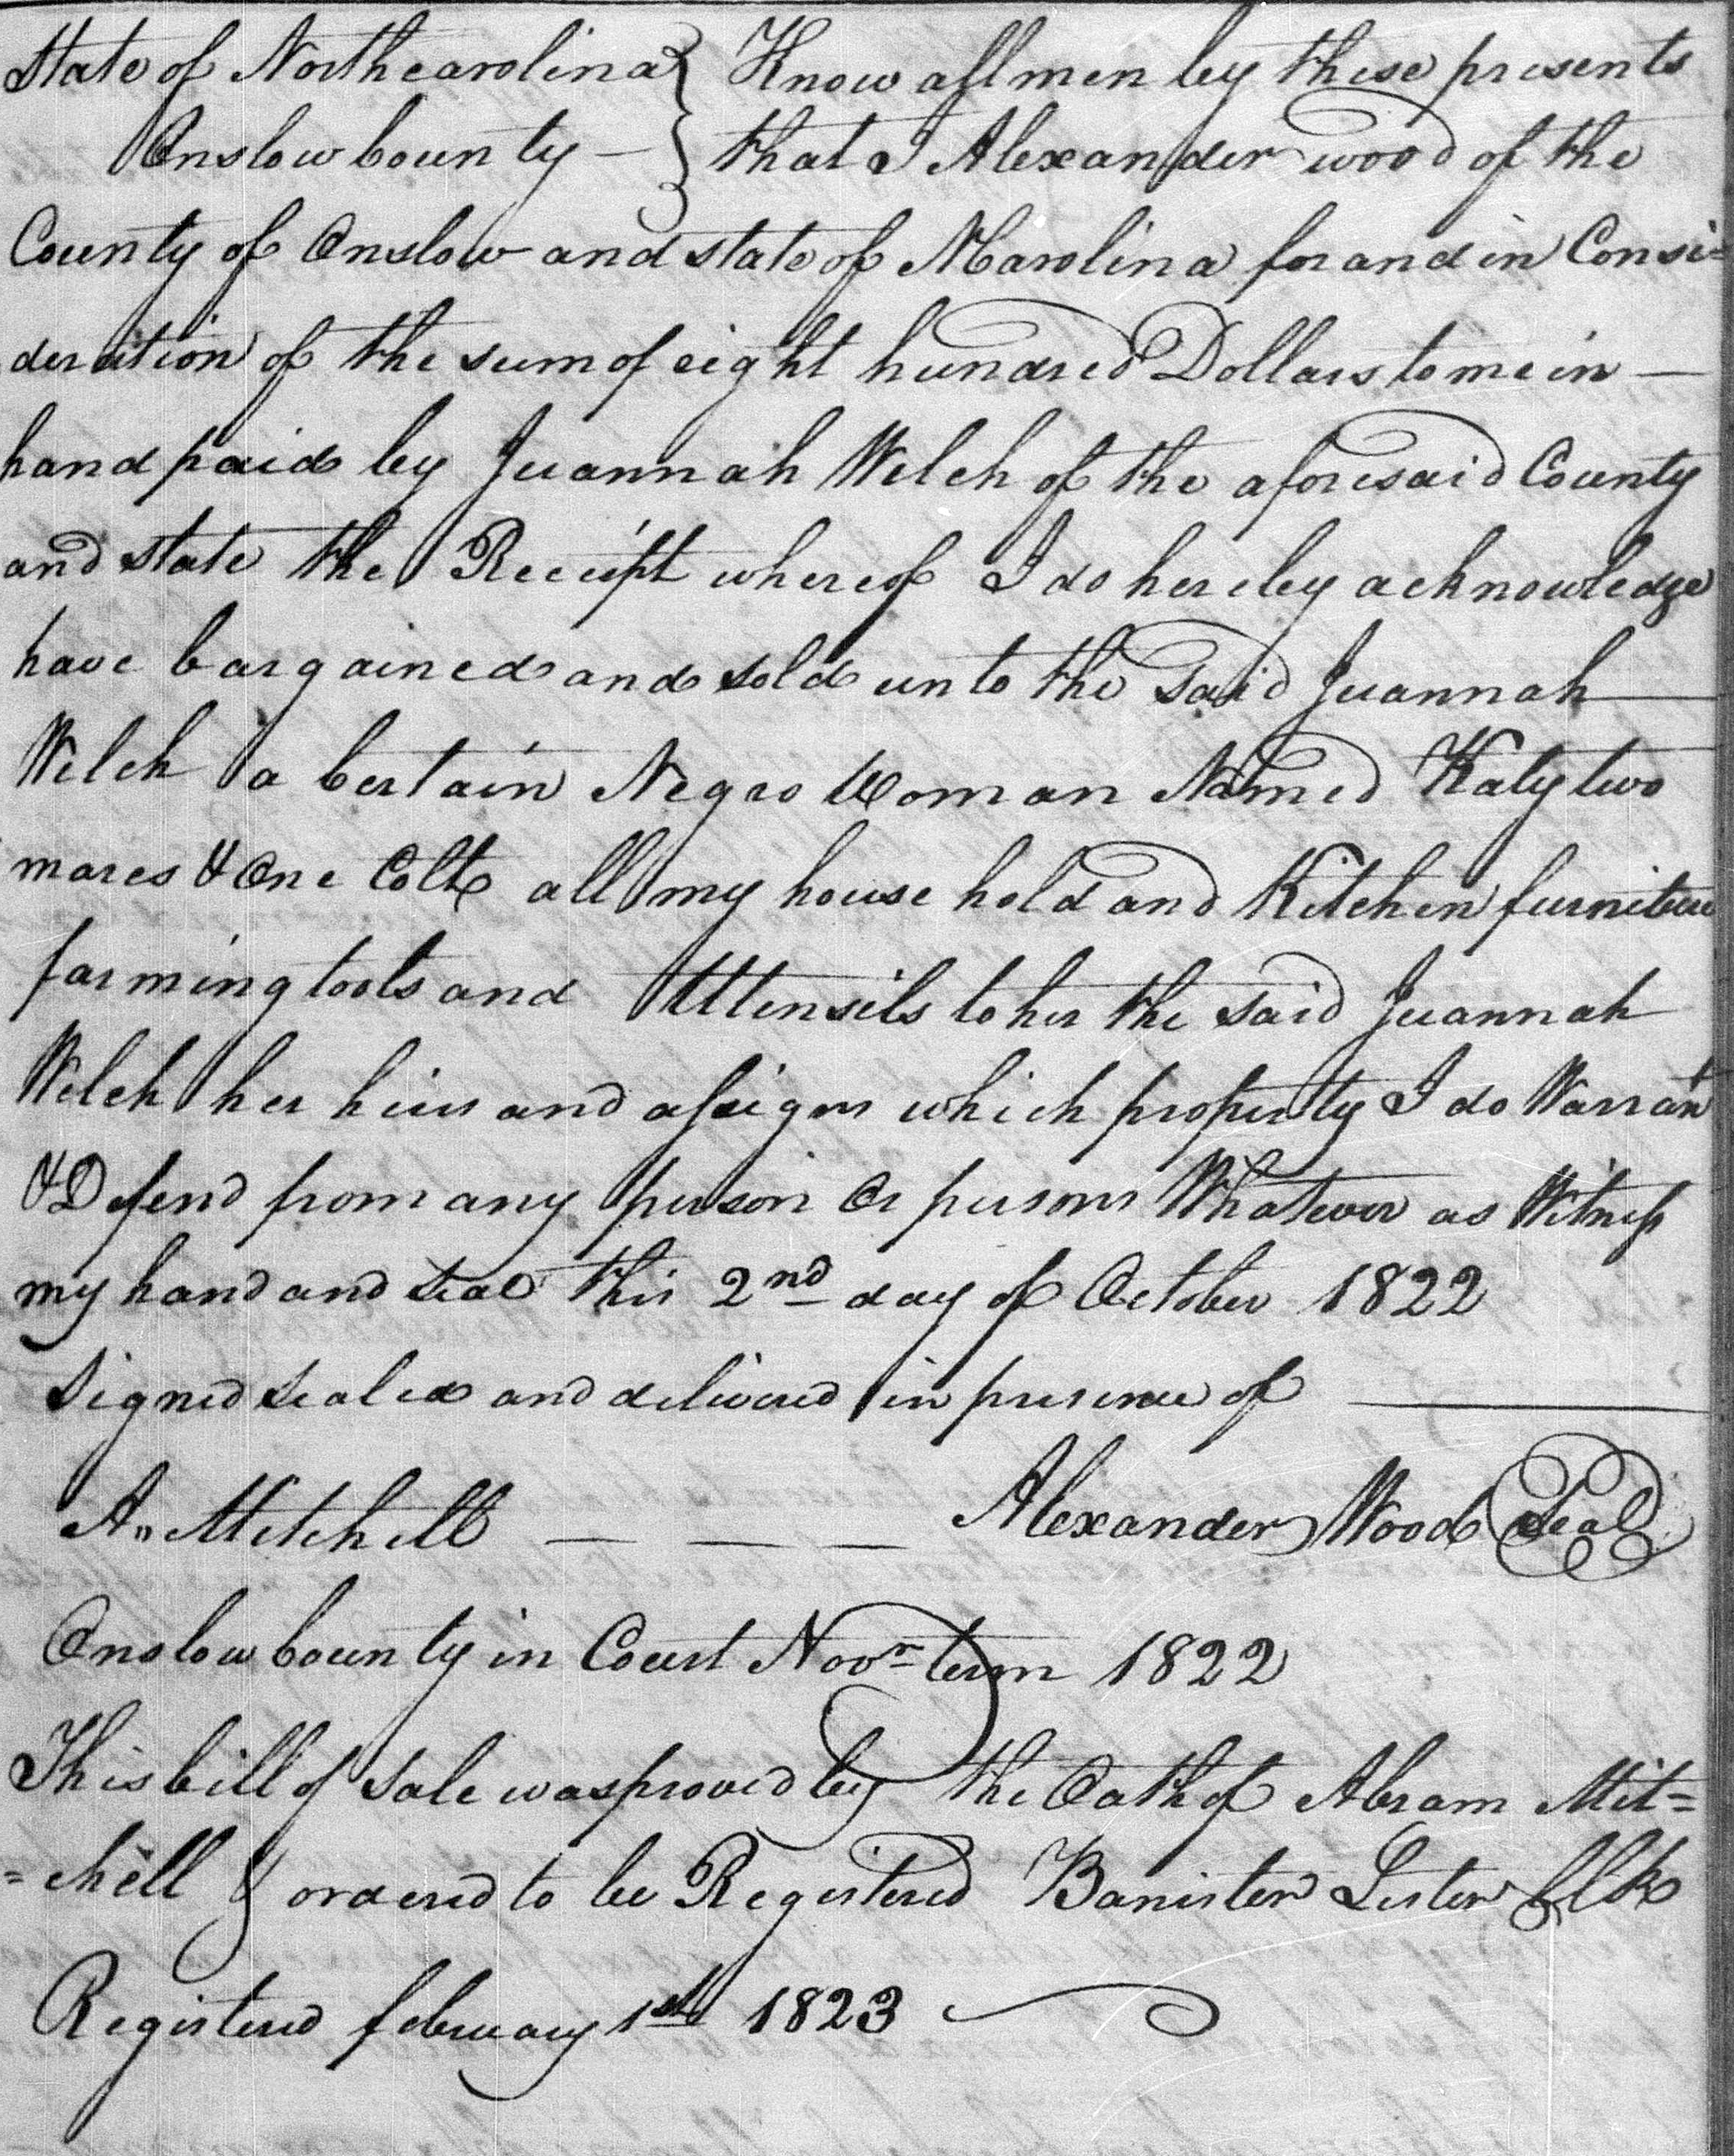 State of Northcarolina } Know all men by these presents
Onslow County — } that I Alexander wood of the
County of Onslow and state of NCarolina for and in Consi=
deration of the sum of eight hundred Dollars to me in —
hand paid by Juannah Welch of the aforesaid County
and state the Receipt whereof I do hereby acknowledge
have bargained and sold unto the said Juannah
Welch a Certain Negro Woman Named Katy two
mares & One Colt all my house hold and Kitchen furniture
farming tools and Uttensils to her the said Juannah
Welch her heirs and assigns which property I do Warran
& Defend from any person Or persons Whatever as Witness
my hand and seal this 2nd day of October 1822
Signed sealed and delivered in presence of
A. Mitchell — — — Alexander Wood Seal
Onslow County in Court Novr term 1822
This bill of sale was proved by the Oath of Abram Mit=
=chell & ordered to be Registered Banister Lester Clk
Registered february 1st 1823